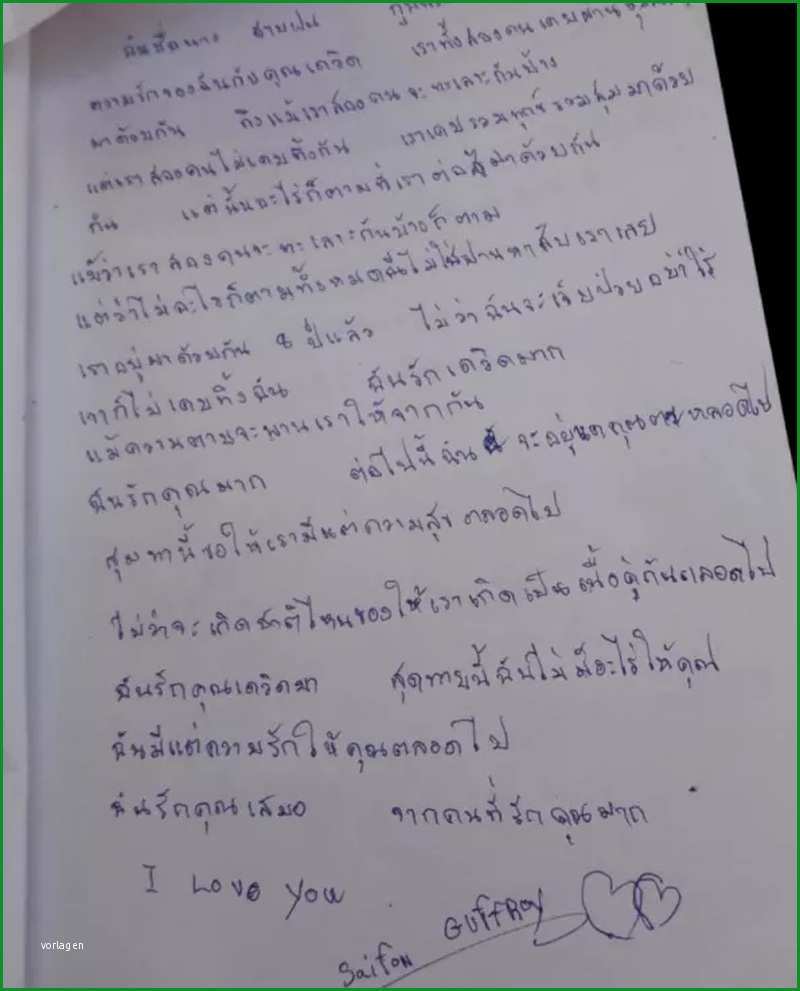 ฉันชื่อนาง สายฝน
ความรักของฉันกับคุณเดวิด เราทั้งสองคนเคยผ่าน
มาด้วยกัน ถึงแม้เราสองคนจะทะเลาะกันบ้าง
แต่เราสองคนไม่เคยทิ้งกัน เราเคยรวมทุกข์รวมสุขมาด้วย
กัน แต่นั้นอะไรก็ตามที่เราต่อสู้มาด้วยกัน
แม้ว่าเราสองคนจะทะเลาะกันบ้างก็ตาม
แต่ว่าไม่อะไรก็ตามทั้งหมดนี้ไม่ได้ผ่านหาสิบเราเลย
เราอยู่มาด้วยกัน 8 ปีแล้ว ไม่ว่าฉันจะเจ็บป่วยอย่าไร
เขาก็ไม่เคยทิ้งฉัน ฉันรักเดวิดมาก
แม้ความตายจะพานเราให้จากกัน
ฉันรักคุณมาก ต่อไปนี้ฉัน จะอยู่ คุณ ตลอดไป
สุดทานี้ขอให้เรามีแต่ความสุขตลอดไป
ไม่ว่าจะเกิดชาติไหนขอให้เราเกิดเป็นเนื้อคู่กันตลอดไป
ฉันรักคุณเดวิดมา สุดทายนี้ฉันไม่มีอะไรให้คุณ
ฉันมีแต่ความรักให้คุณตลอดไป
ฉันรักคุณเสมอ จากคนที่รักคุณมาก
I Love You
Saifon GUFFROY
vorlagen